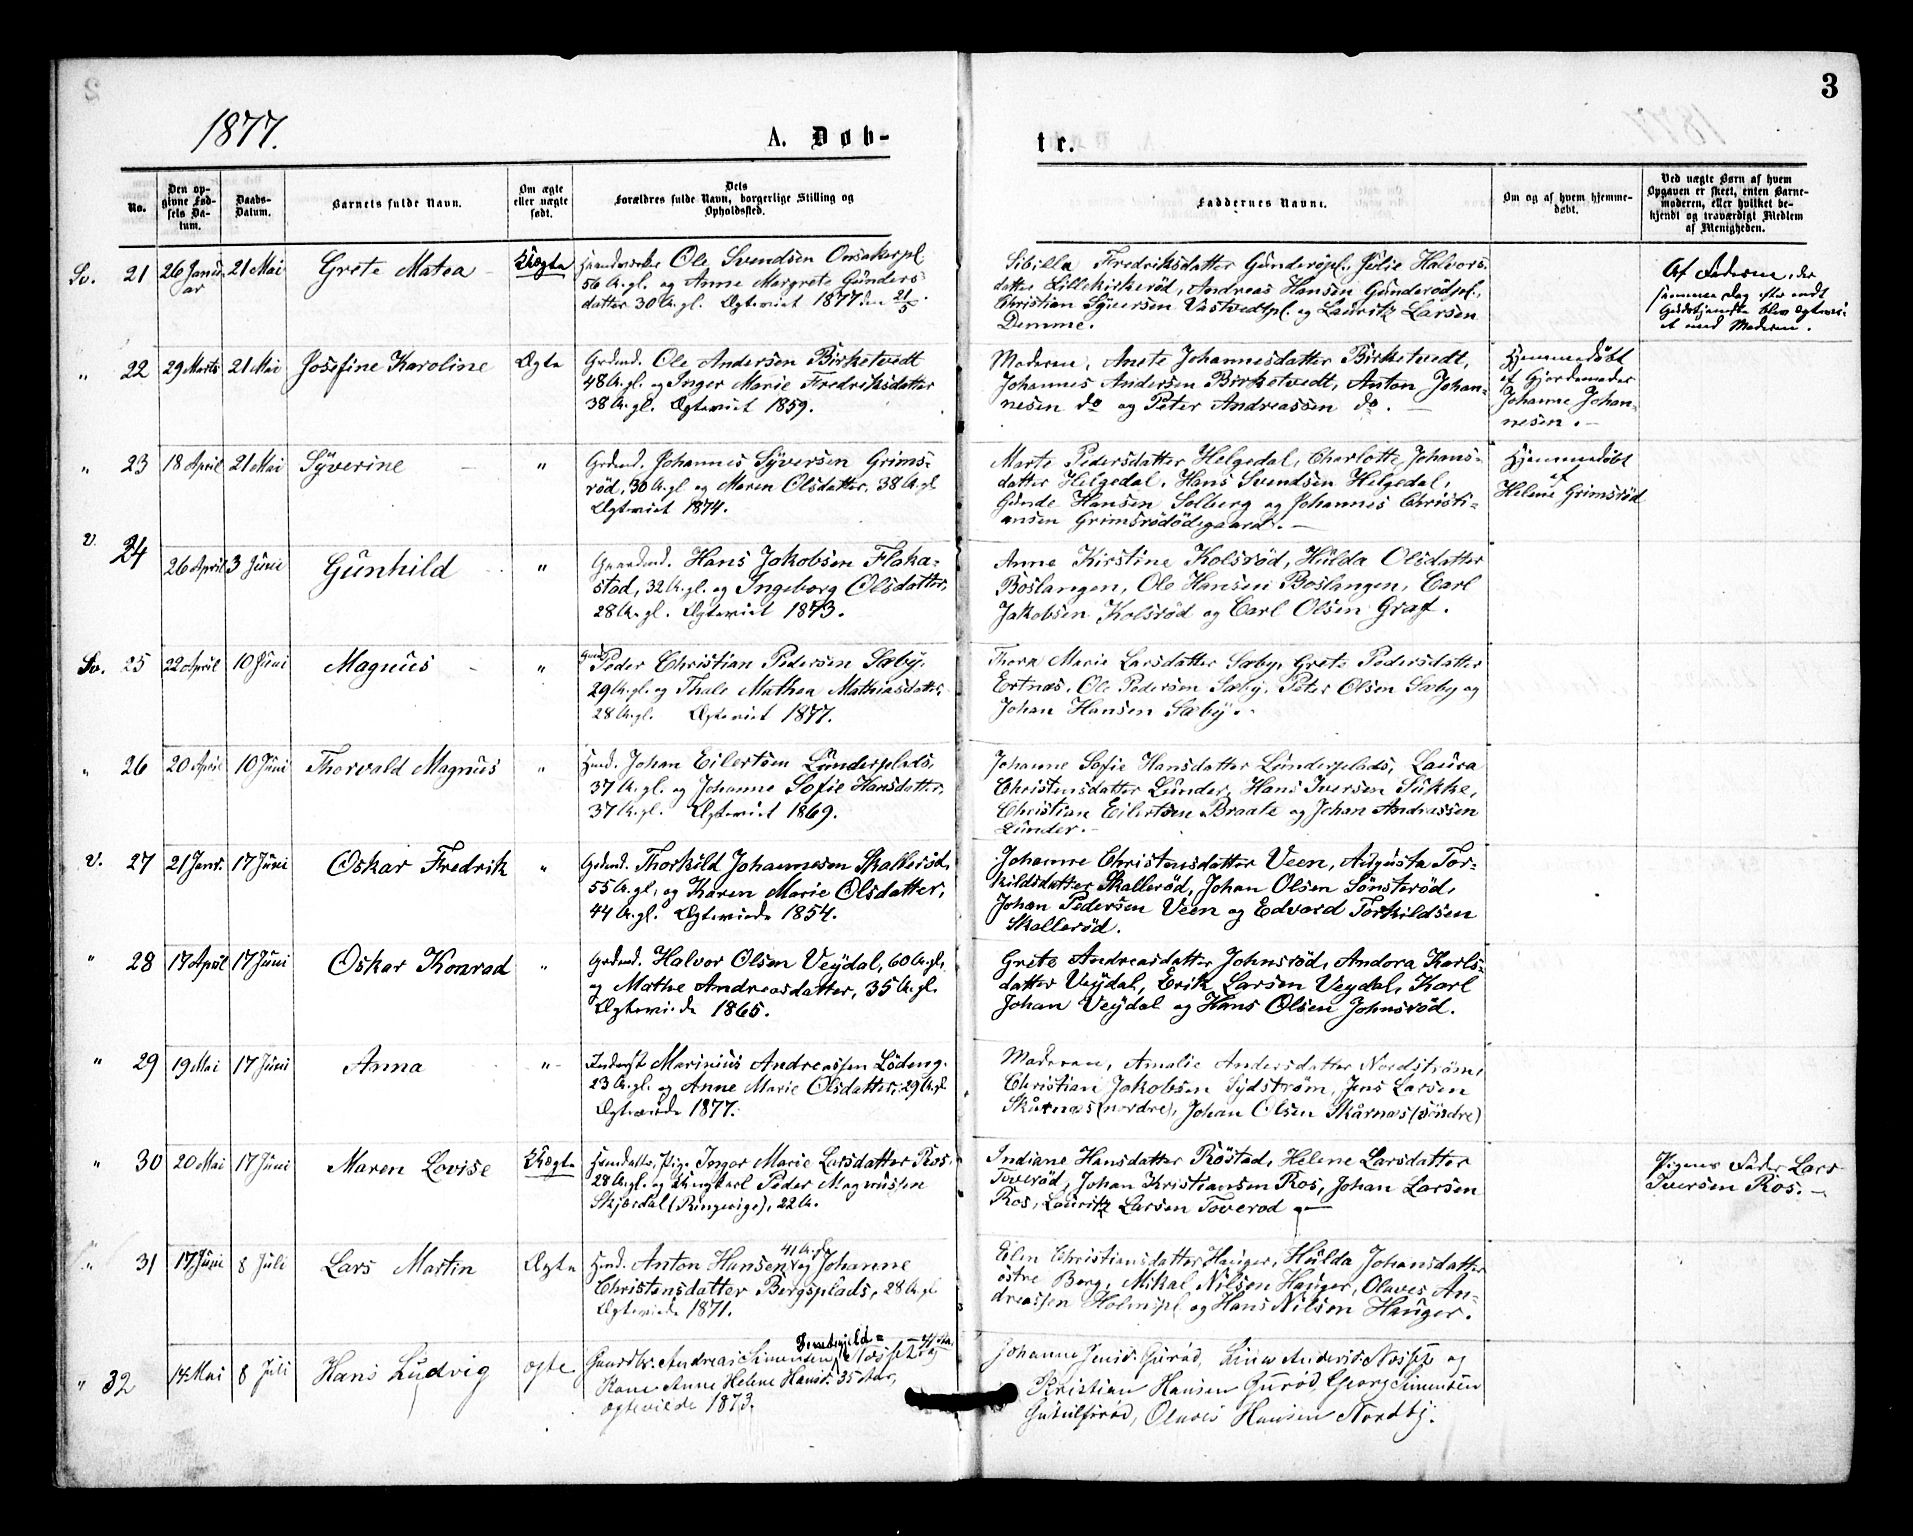 3
1877.
A. Døb-
te.
No.
Den op-
givne Fød-
sels Da-
tum.
Daabs-
Datum.
Barnets fulde Navn.
Om ægte
eller uægte
født.
Dets
Forældres fulde Navn, borgerlige Stilling og
Opholdssted.
Faddernes Navne.
Om og af hvem hjemme-
døbt.
Ved uægte Børn af hvem
Opgaven er skeet, enten Barne-
moderen, eller hvilket be-
kjendt og troværdigt Medlem
af Menigheden.
Sv. 21
26 Janu-
ar
21 Mai
Grete Matea
Uægte
Haandværker Ole Svendsen Onsakerpl.
56 A. gl. og Anne Margrete Günders-
datter 30 A. gl. Ægteviet 1877 den 21/5.
Sibilla Fredriksdatter Günderöpl., Jülie Halvors-
datter Lillekirkeröd, Andreas Hansen Günderödpl.,
Christian Syversen Vastvedtpl. og Lauritz Larsen
Demme.
Af Faderen, der
samme Dag efter endt
Gudstjeneste blev Ægtevi-
et med Moderen.
" 22
29 Marts
21 Mai
Josefine Karoline
Ægte
Grdmd. Ole Andersen Birketvedt
48 A. gl. og Inger Marie Fredriksdatter
38 A. gl. Ægteviet 1859.
Moderen, Anete Johannesdatter Birketvedt,
Johannes Andersen Birketvedt, Anton Johan-
nesen do og Peter Andreassen do. —
Hjemmedöbt
af Gjordemoder
Johanne Johan-
nesen. -
" 23
18 April
21 Mai
Syverine
"
Grdmd. Johannes Syversen Grims-
röd, 30 A. gl. og Maren Olsdatter, 38 A. gl.
Ægteviet 1874.
Marte Pedersdatter Helgedal, Charlotte Johans-
datter Helgedal, Hans Svendsen Helgedal,
Günde Hansen Solberg og Johannes Christi-
ansen Grimsrödödegaard. —
Hjemmedöbt
af
Helene Grimsröd
V. 24
26 April
3 Jüni
Günhild
"
Gaardmd. Hans Jakobsen Flaka-
stad, 32 A. gl. og Ingeborg Olsdatter,
28 A. gl. Ægteviet 1873.
Anne Kirstine Kolsröd, Hülda Olsdatter
Boslangen, Ole Hansen Boslangen, Carl
Jakobsen Kolsröd og Carl Olsen Graf.
Sv. 25
22 April
10 Jüni
Magnüs
"
Grdmd. Peder Christian Pedersen Sæby,
29 A. gl. og Thale Mathea Mathiasdatter,
28 A. gl. Ægteviet 1877.
Thora Marie Larsdatter Sæby, Grete Pedersdatter
Ertnæs, Ole Pedersen Sæby, Peter Olsen Sæby og
Johan Hansen Sæby. -
" 26
20 April
10 Jüni
Thorvald Magnus
"
Hmd. Johan Eilertsen Lünderplads,
37 A. gl. og Johanne Sofie Hansdatter,
37 A. gl. Ægteviet 1869.
Johanne Sofie Hansdatter Lünderplads, Laura
Christensdatter Lünder, Hans Iversen Sükke,
Christian Eilertsen Braate og Johan Andreassen
Lünder. -
V. 27
21 Janr.
17 Jüni
Oskar Fredrik
"
Grdmd. Thorkild Johannesen Skalleröd,
55 A. gl. og Karen Marie Olsdatter,
44 A. gl. Ægteviede 1854.
Johanne Christensdatter Veen, Augusta Tor-
kildsdatter Skalleröd, Johan Olsen Sönsteröd,
Johan Pedersen Veen og Edvard Torkildsen
Skalleröd.
" 28
17 April
17 Jüni
Oskar Konrad
"
Grdmd. Halvor Olsen Veydal, 60 A. gl.,
og Mathe Andreasdatter, 35 A. gl.
Ægteviede 1865.
Grete Andreasdatter Johnsröd, Andora Karls-
datter Veydal, Erik Larsen Veydal, Karl
Johan Veydal og Hans Olsen Johnsröd.
" 29
19 Mai
17 Jüni
Anna
"
Inderst Marinius Andreassen Lödeng,
23 A. gl. og Anne Marie Olsdatter, 29 A. gl.
Ægteviede 1877.
Moderen, Amalie Andersdatter Nordström,
Christian Jakobsen Sydström, Jens Larsen
Skårnæs (nordre), Johan Olsen Skårnæs (söndre)
" 30
20 Mai
17 Jüni
Maren Lovise
Uægte
Huusdatter, Pige Inger Marie Larsdatter Ros,
28 A. gl. og Ungkarl Peder Magnüssen
Skjærdal (Ringerige), 22 A.
Indiane Hansdatter Röstad, Helene Larsdatter
Toveröd, Johan Kristiansen Ros, Johan Larsen
Ros, Lauritz Larsen Toverod. —
Pigens Fader Lars
Iversen Ros. -
" 31
17 Jüni
8 Juli
Lars Martin
Ægte
Hmd. Anton Hansen, 41 A. gl. og Johanne
Christensdatter Bergsplads, 28 A. gl.
Ægteviede 1871.
Elen Christiansdatter Hauger, Hülda Johansdatter
östre Berg, Mikal Nilsen Haüger, Olaves An-
dreassen Holmspl. og Hans Nilsen Hauger.
" 32
14 Mai
8 Juli
Hans Ludvig
ægte
Gaardbr. Andreas Simensen Næsset og
Kone Anne Helene Hansd. 35 Aar,
ægteviede 1873.
Johanne Jensd. Guröd, Lina Andersd. Næsset og
Kristian Hansen Guröd, Georg Simensen
Gubulfsröd, Olaves Hansen Nordby.